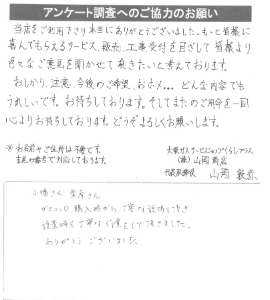 アンケート調査へのご協力のお願い
当店をご利用下さり本当にありがとうございました。もっと皆様に
喜んでもらえるサービス、販売、工事受付を目ざして皆様より
色々なご意見を聞かせて頂きたいと考えております。
おしかり、注意、今後のご希望、おホメ…どんな内容でも
うれしいです。お待ちしております。そしてまたのご用命を一同
心よりお待ちしております。どうぞよろしくお願いします。
※お名前やご住所は不要です。
(株)山岡商店
代表取締役 山岡
さん さん
ガスコンロ購入時から、ご丁寧な説明で
設置時も丁寧な
ありがとうございました。